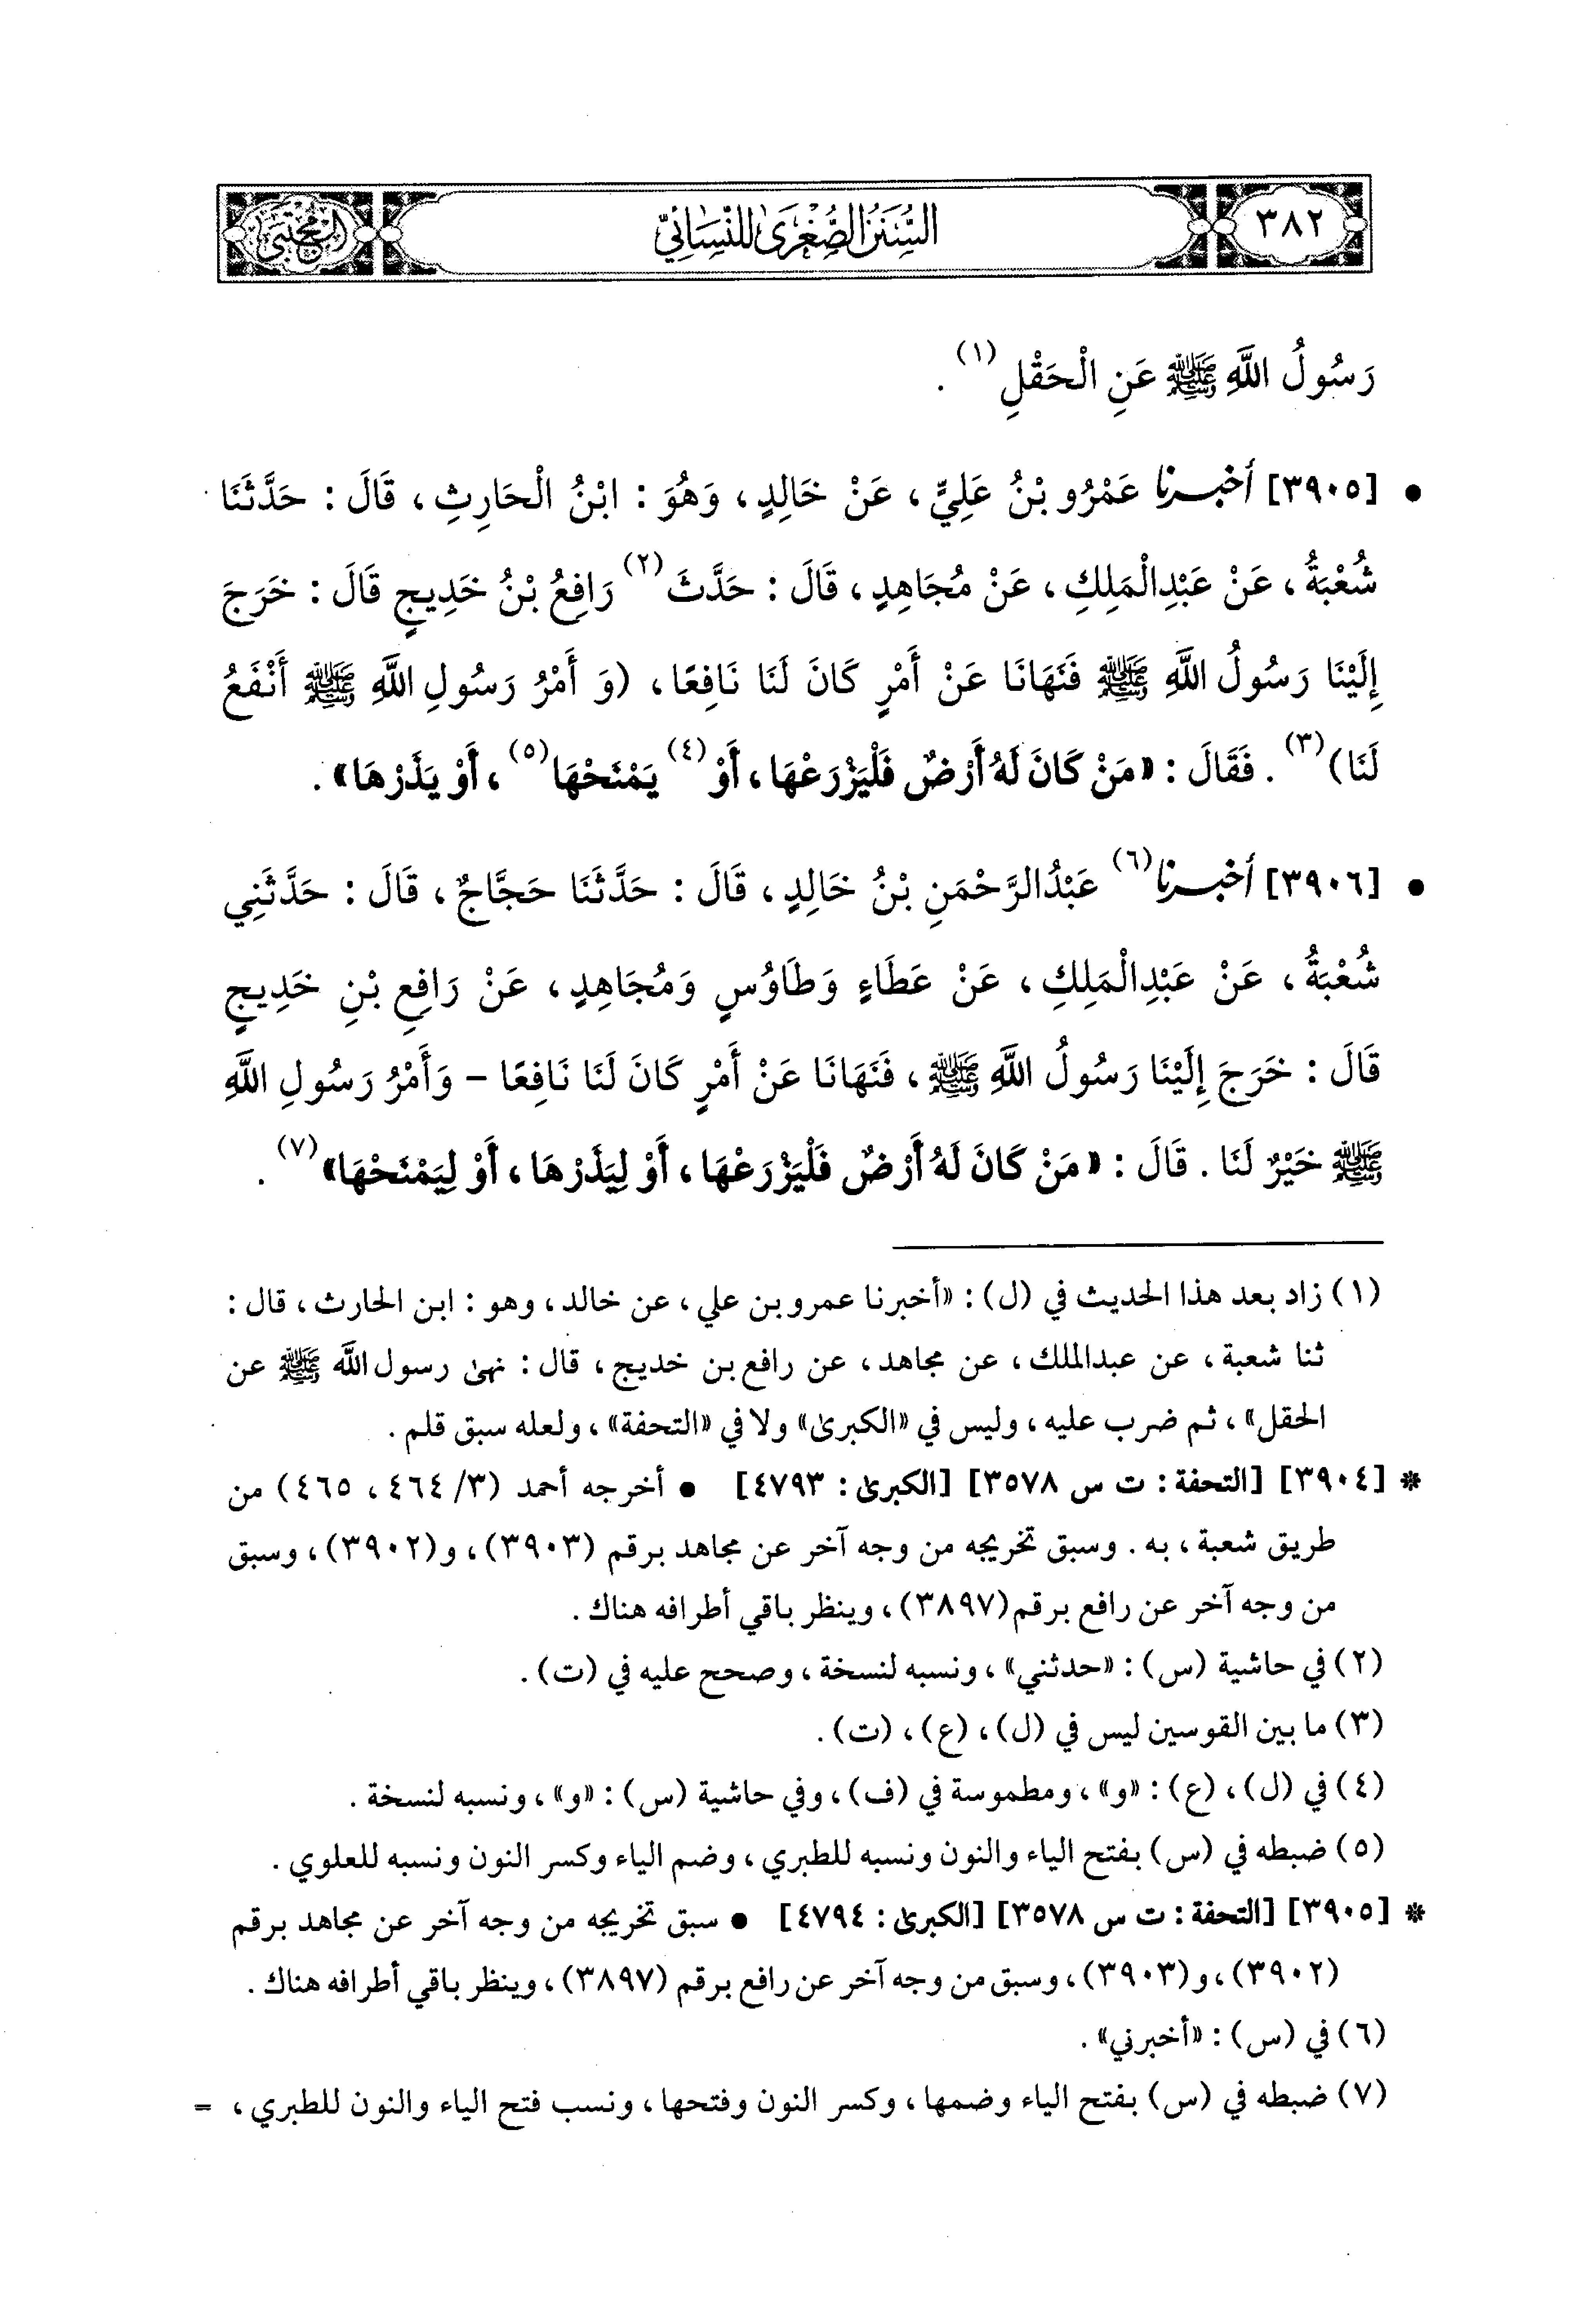 ٣٨٢
السُّنَنُ الصُّغْرَىٰ لِلنَّسَائِيِّ
المجتبى
رَسُولُ اللَّهِ ﷺ عَنِ الْحَقْلِ (١) .
• [٣٩٠٥] أخبرنا عَمْرُو بْنُ عَلِيٍّ ، عَنْ خَالِدٍ ، وَهُوَ : ابْنُ الْحَارِثِ ، قَالَ : حَدَّثَنَا
شُعْبَةُ ، عَنْ عَبْدِالْمَلِكِ ، عَنْ مُجَاهِدٍ ، قَالَ : حَدَّثَ (٢) رَافِعُ بْنُ خَدِيجٍ قَالَ : خَرَجَ
إِلَيْنَا رَسُولُ اللَّهِ ﷺ فَنَهَانَا عَنْ أَمْرٍ كَانَ لَنَا نَافِعًا ، (وَ أَمْرُ رَسُولِ اللَّهِ ﷺ أَنْفَعُ
لَنَا) (٣) . فَقَالَ : «مَنْ كَانَ لَهُ أَرْضٌ فَلْيَزْرَعْهَا ، أَوْ (٤) يَمْنَحْهَا (٥) ، أَوْ يَذَرْهَا» .
• [٣٩٠٦] أخبرنا (٦) عَبْدُالرَّحْمَنِ بْنُ خَالِدٍ ، قَالَ : حَدَّثَنَا حَجَّاجٌ ، قَالَ : حَدَّثَنِي
شُعْبَةُ ، عَنْ عَبْدِالْمَلِكِ ، عَنْ عَطَاءٍ وَطَاوُسٍ وَمُجَاهِدٍ ، عَنْ رَافِعِ بْنِ خَدِيجٍ
قَالَ : خَرَجَ إِلَيْنَا رَسُولُ اللَّهِ ﷺ ، فَنَهَانَا عَنْ أَمْرٍ كَانَ لَنَا نَافِعًا - وَأَمْرُ رَسُولِ اللَّهِ
ﷺ خَيْرٌ لَنَا . قَالَ : «مَنْ كَانَ لَهُ أَرْضٌ فَلْيَزْرَعْهَا ، أَوْ لِيَذَرْهَا ، أَوْ لِيَمْنَحْهَا» (٧) .
(١) زاد بعد هذا الحديث في (ل) : «أخبرنا عمرو بن علي ، عن خالد ، وهو : ابن الحارث ، قال :
ثنا شعبة ، عن عبدالملك ، عن مجاهد ، عن رافع بن خديج ، قال : نهىٰ رسول اللَّه ﷺ عن
الحقل» ، ثم ضرب عليه ، وليس في «الكبرىٰ» ولا في «التحفة» ، ولعله سبق قلم .
* [٣٩٠٤] [التحفة : ت س ٣٥٧٨] [الكبرىٰ : ٤٧٩٣] • أخرجه أحمد (٣/ ٤٦٤ ، ٤٦٥) من
طريق شعبة ، به . وسبق تخريجه من وجه آخر عن مجاهد برقم (٣٩٠٣) ، و(٣٩٠٢) ، وسبق
من وجه آخر عن رافع برقم (٣٨٩٧) ، وينظر باقي أطرافه هناك .
(٢) في حاشية (س) : «حدثني» ، ونسبه لنسخة ، وصحح عليه في (ت) .
(٣) ما بين القوسين ليس في (ل) ، (ع) ، (ت) .
(٤) في (ل) ، (ع) : «و» ، ومطموسة في (ف) ، وفي حاشية (س) : «و» ، ونسبه لنسخة .
(٥) ضبطه في (س) بفتح الياء والنون ونسبه للطبري ، وضم الياء وكسر النون ونسبه للعلوي .
* [٣٩٠٥] [التحفة : ت س ٣٥٧٨] [الكبرىٰ : ٤٧٩٤] • سبق تخريجه من وجه آخر عن مجاهد برقم
(٣٩٠٢) ، و(٣٩٠٣) ، وسبق من وجه آخر عن رافع برقم (٣٨٩٧) ، وينظر باقي أطرافه هناك .
(٦) في (س) : «أخبرني» .
(٧) ضبطه في (س) بفتح الياء وضمها ، وكسر النون وفتحها ، ونسب فتح الياء والنون للطبري ، =